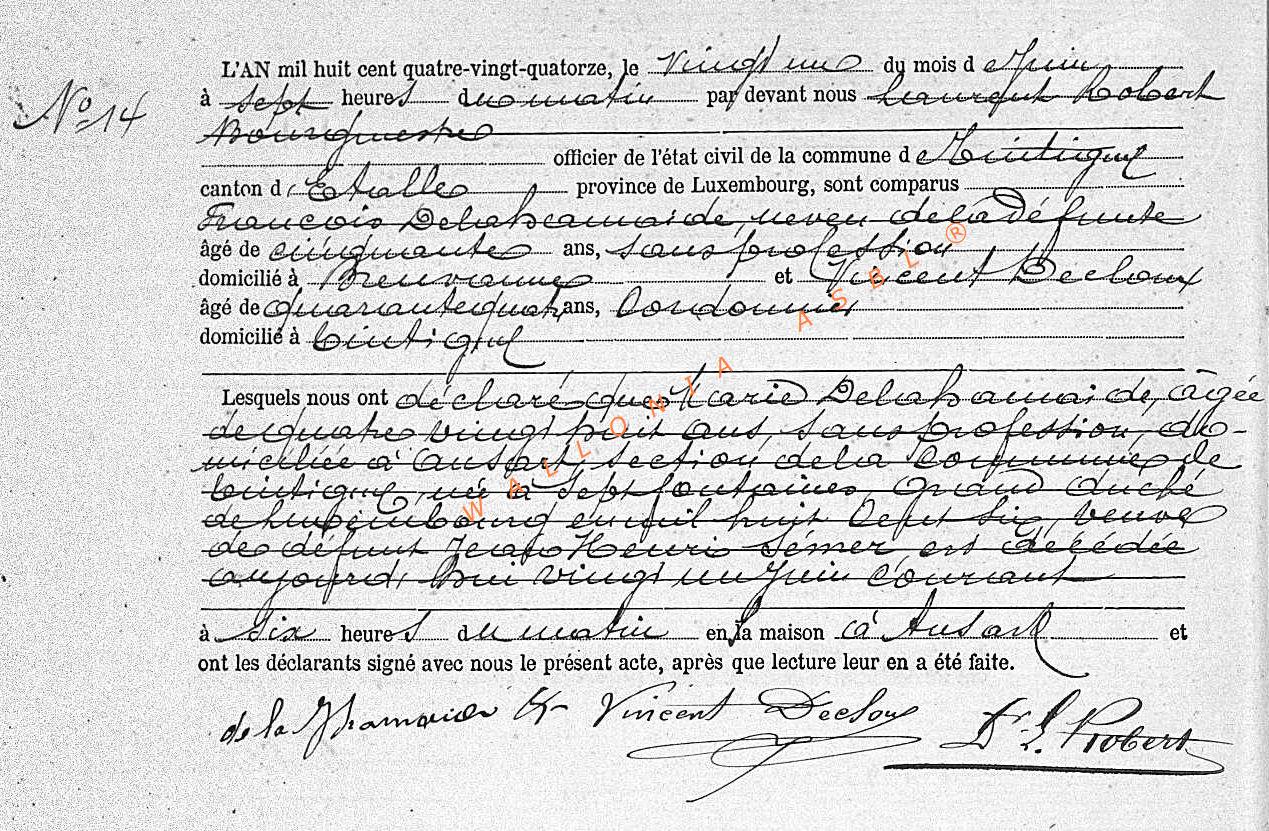 L'AN mil huit cent quatre-vingt-quatorze, le vingt un du mois d e Juin
N° 14
à sept heures du matin par devant nous Laurent Robert
Bourgmestre
officier de l'état civil de la commune d e Tintigny
canton d' Etalle province de Luxembourg, sont comparus
François Delahamaide, neveu de la défunte
âgé de cinquante ans, sans profession
domicilié à Breuvanne et Vincent Decloux
âgé de quarante quatre ans, Cordonnier
domicilié à Tintigny
Lesquels nous ont déclaré que Marie Delahamaide, âgée
de quatre vingt huit ans, sans profession, do-
miciliée à Ansart, section de la Commune de
Tintigny, née à Septfontaines, Grand duché
de Luxembourg en mil huit Cent Six, veuve
de défunt Jean Henri Sémer, est décédée
aujourd'hui vingt un Juin Courant
à Six heures du matin en la maison à Ansart et
ont les déclarants signé avec nous le présent acte, après que lecture leur en a été faite.
de la Vincent Decloux Dr L. Robert
WALLONIA ASBL ®